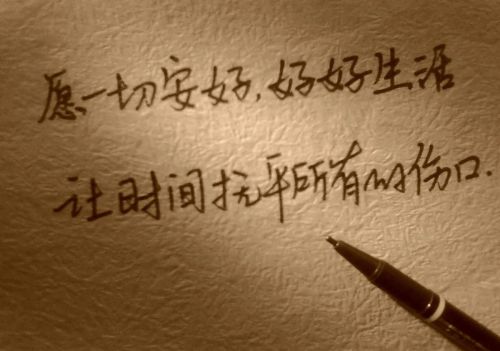 愿一切安好,好好生活
让时间抚平所有的伤口.